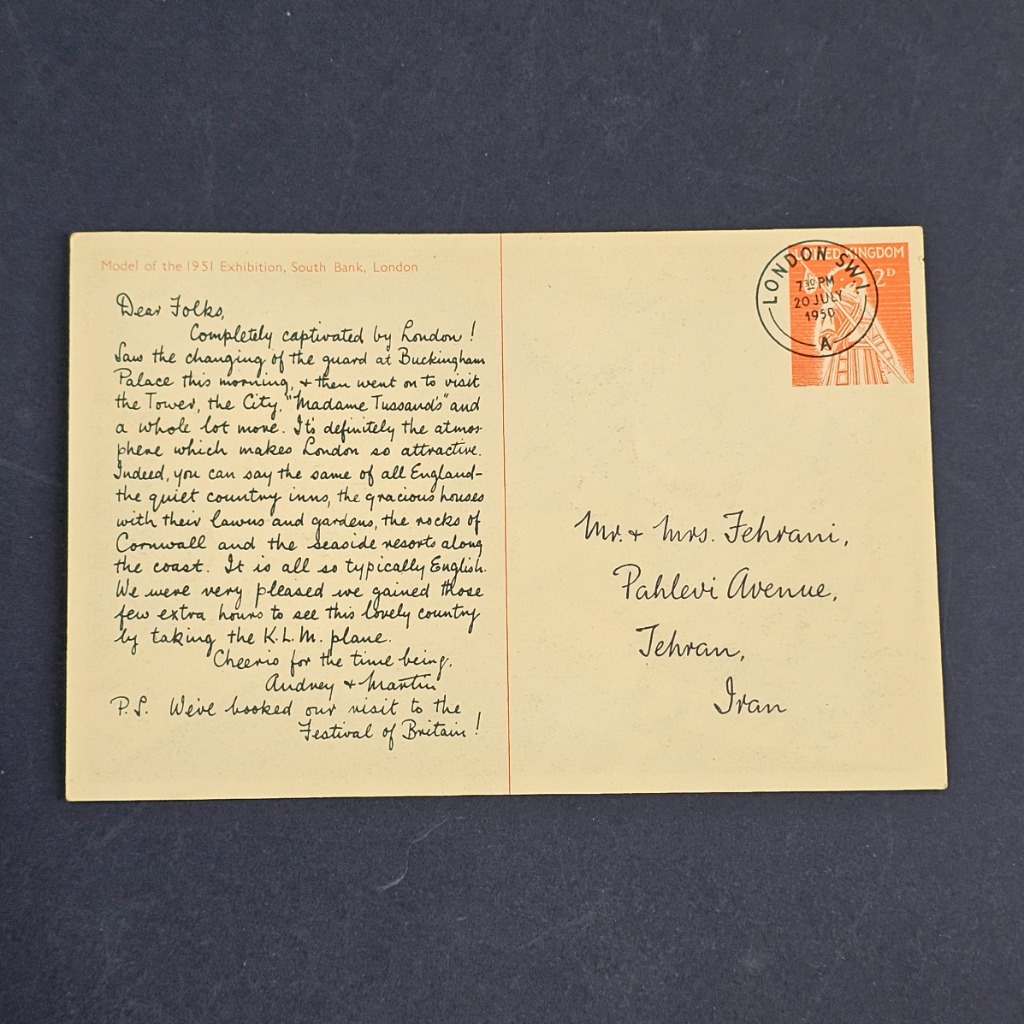 Model of the 1951 Exhibition, South Bank, London
Dear Folks,
Completely captivated by London!
Saw the changing of the guard at Buckingham
Palace this morning, & then went on to visit
the Tower, the City, "Madame Tussaud's" and
a whole lot more. It's definitely the atmos-
phere which makes London so attractive.
Indeed, you can say the same of all England-
the quiet country inns, the gracious houses
with their lawns and gardens, the rocks of
Cornwall and the seaside resorts along
the coast. It is all so typically English.
We were very pleased we gained those
few extra hours to see this lovely country
by taking the K.L.M. plane.
Cheerio for the time being,
Audrey & Martin
P.S. We've booked our visit to the
Festival of Britain!
UNITED KINGDOM
2D
LONDON S.W.1.
7 30 PM
20 JULY
1950
A
Mr. & Mrs. Tehrani,
Pahlevi Avenue,
Tehran,
Iran